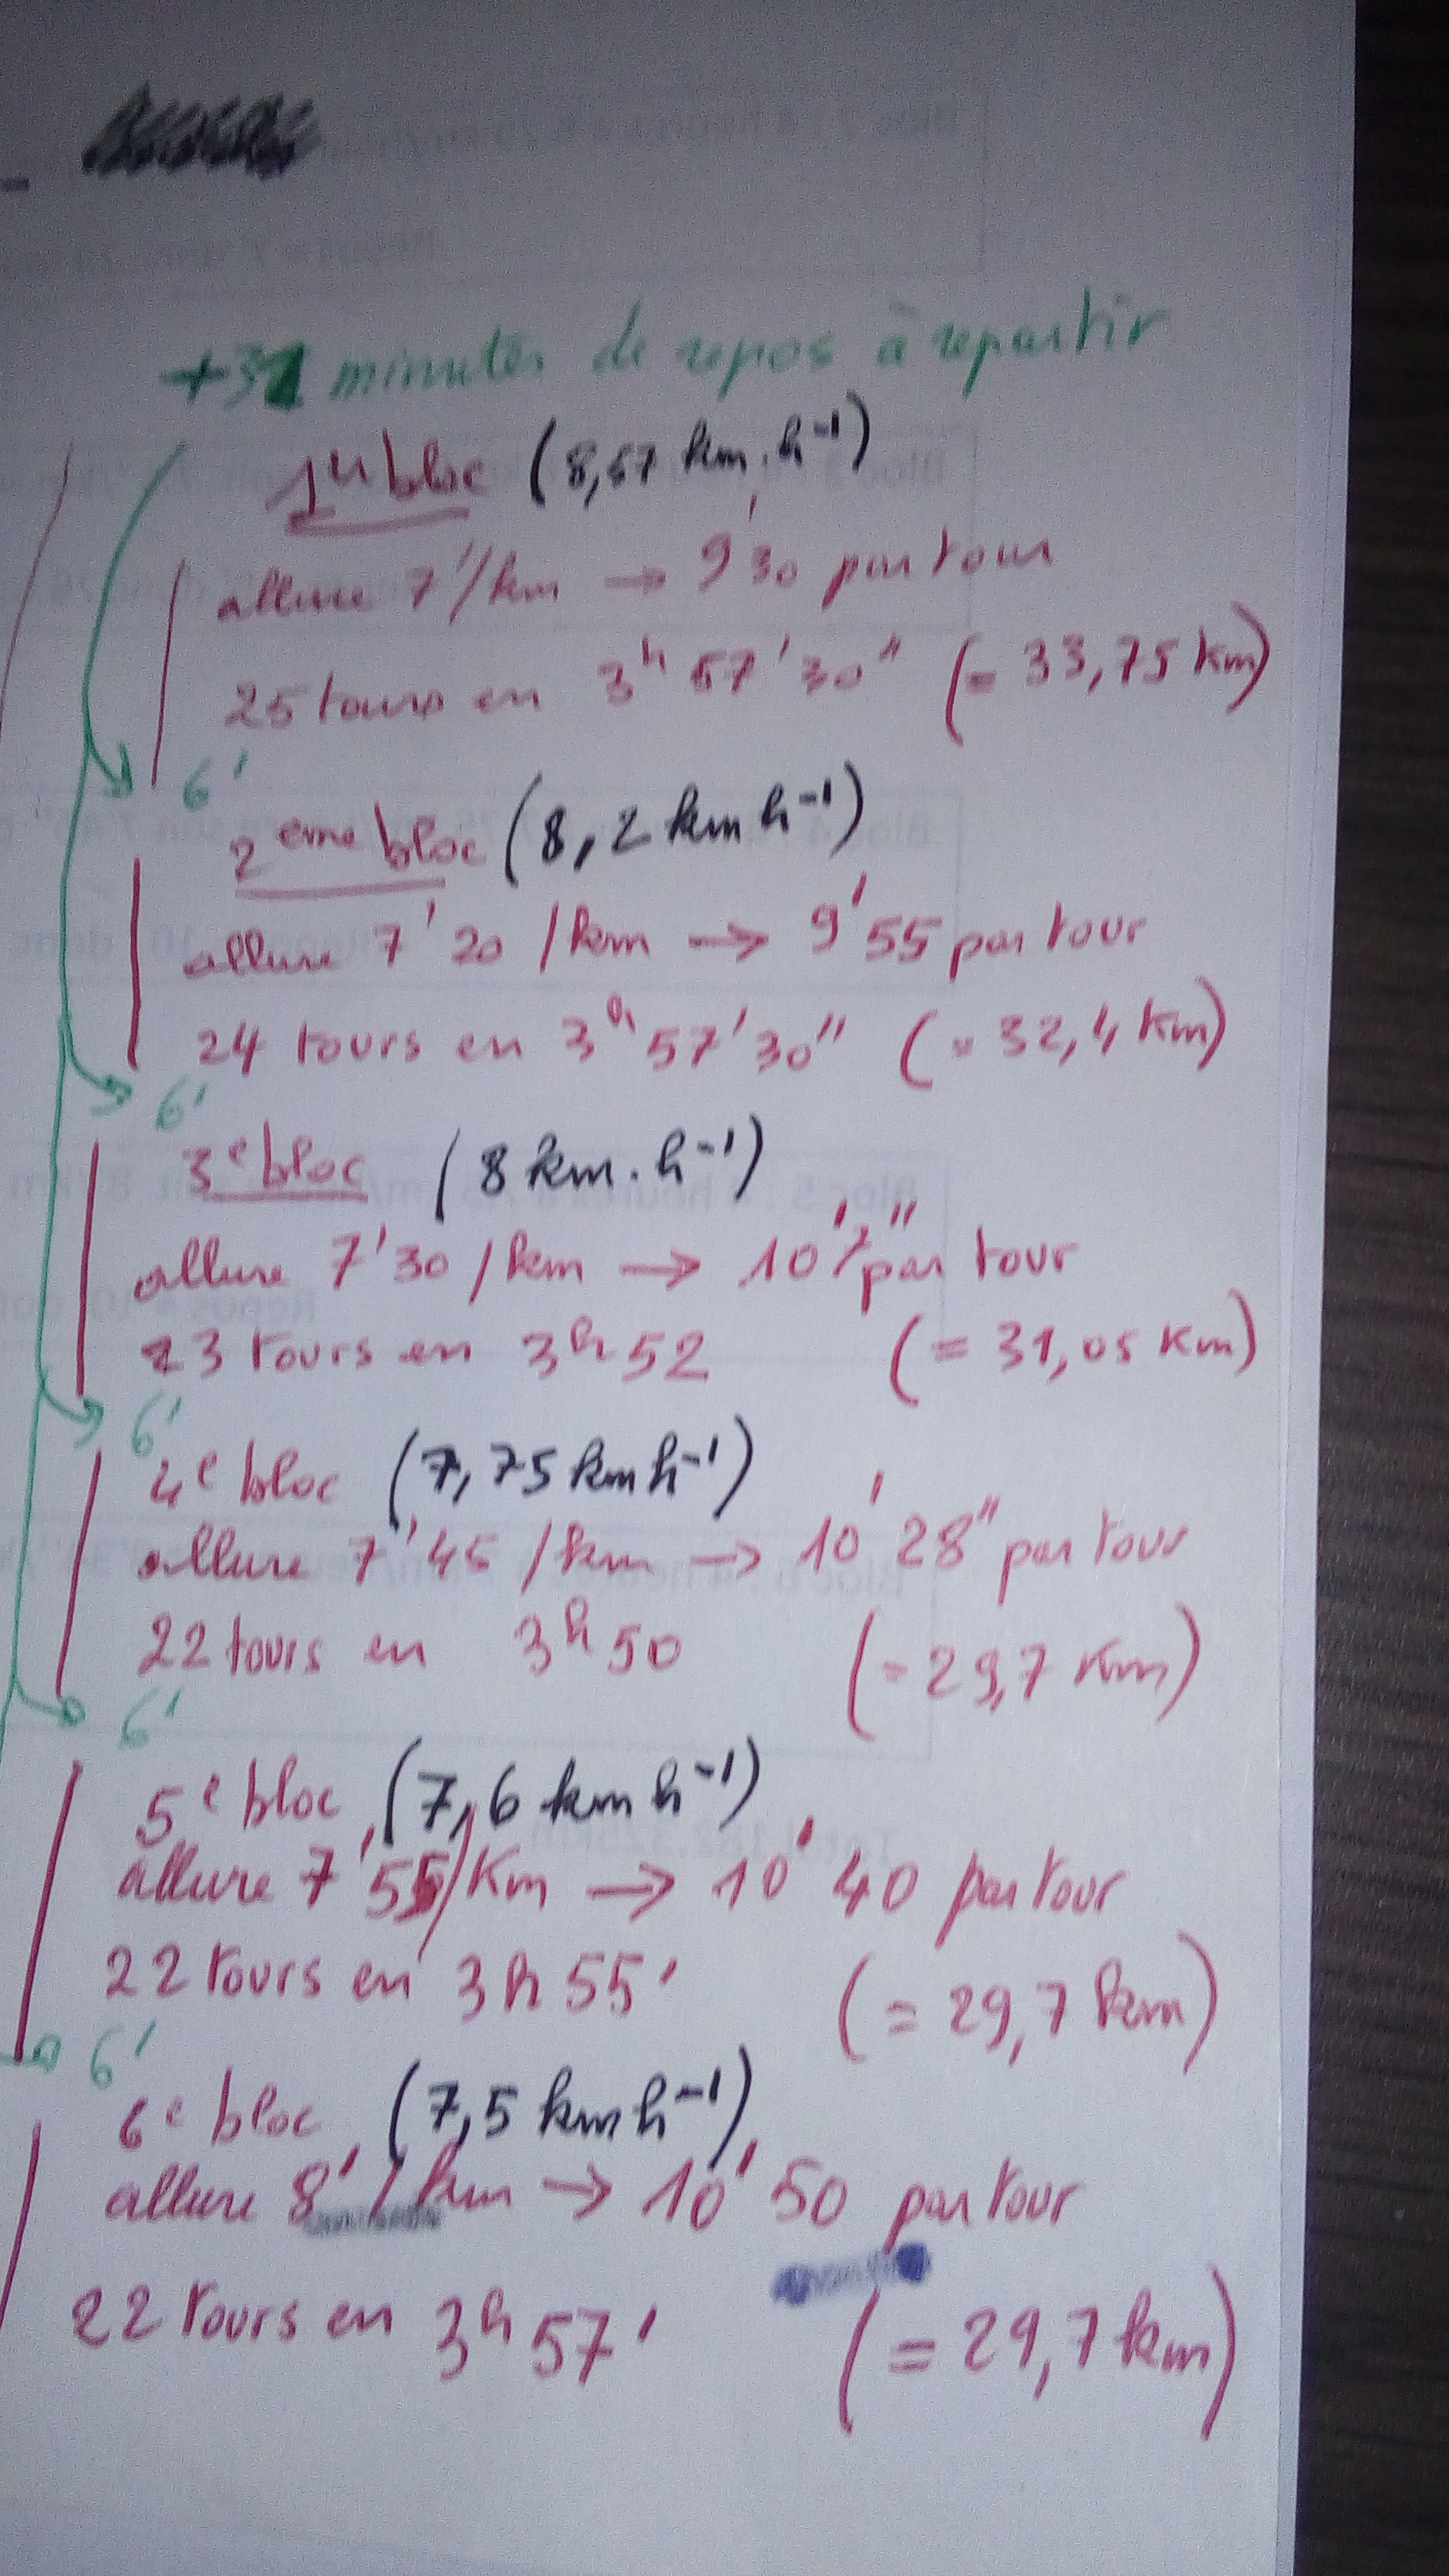 +31 minutes de repos à repartir
1er bloc (8,57 km.h⁻¹)
allure 7'/km → 9'30 par tour
25 tours en 3h 57'30" (= 33,75 km)
6'
2eme bloc (8,2 km h⁻¹)
allure 7'20 /km → 9'55 par tour
24 tours en 3h 57'30" (= 32,4 km)
6'
3e bloc (8 km.h⁻¹)
allure 7'30 /km → 10'7" par tour
23 tours en 3h52 (= 31,05 km)
6'
4e bloc (7,75 km h⁻¹)
allure 7'45 /km → 10'28" par tour
22 tours en 3h50 (= 29,7 km)
6'
5e bloc (7,6 km h⁻¹)
allure 7'55/km → 10'40 par tour
22 tours en 3h55' (= 29,7 km)
6'
6e bloc (7,5 km h⁻¹)
allure 8'/km → 10'50 par tour
22 tours en 3h57' (= 29,7 km)